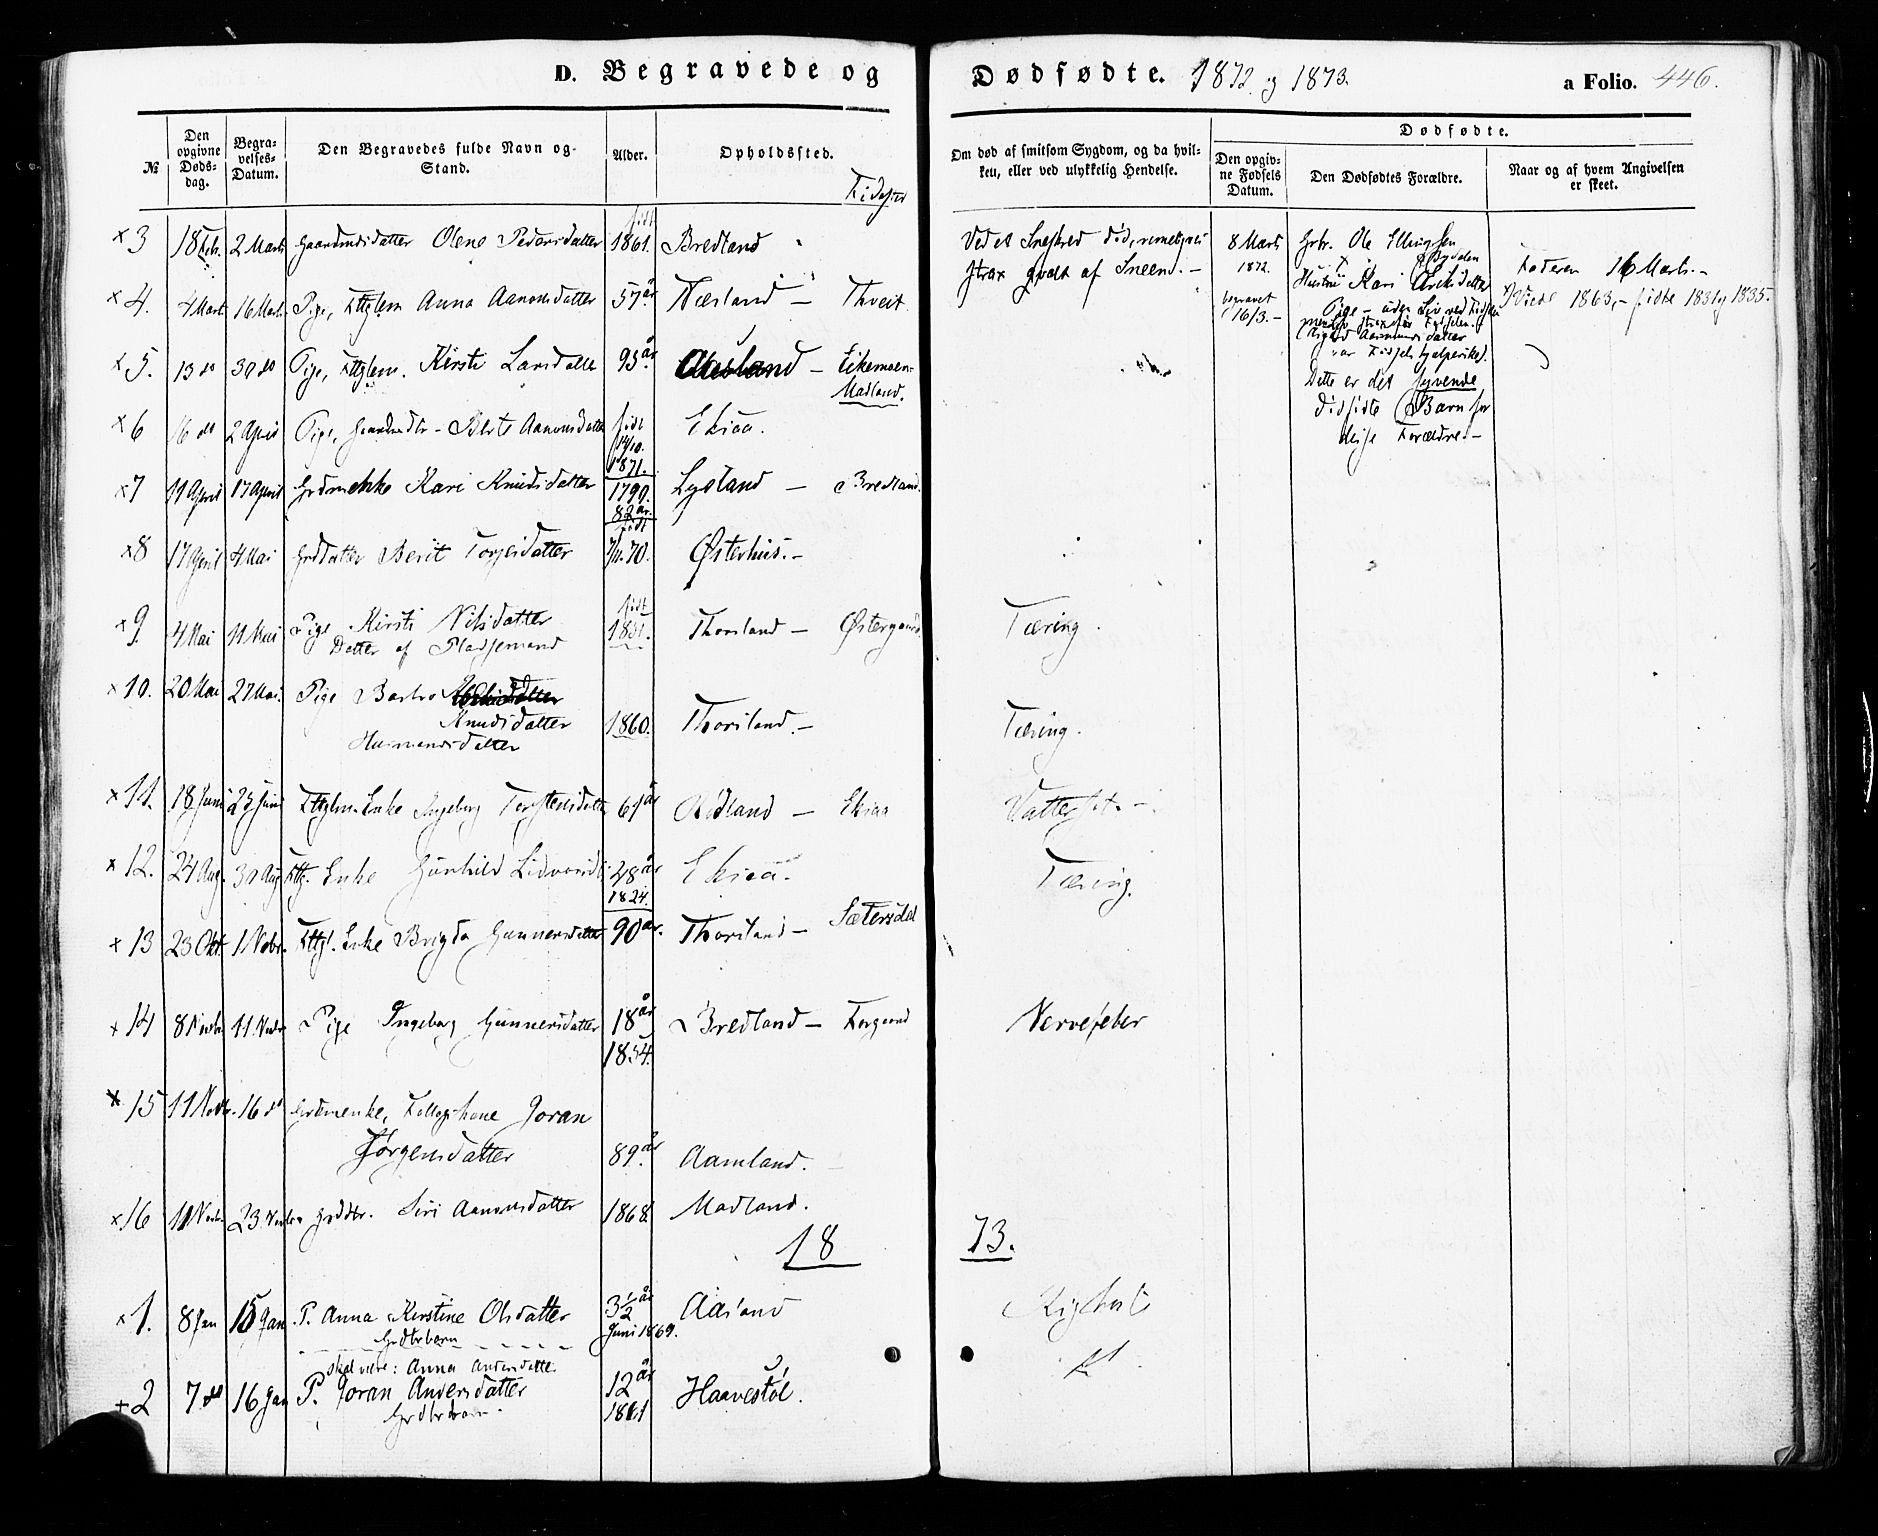 D. Begravede og Dødfødte. 1872 og 1873. a Folio. 446.
№
Den opgivne Dødsdag.
Begravelses-Datum.
Den Begravedes fulde Navn og Stand.
Alder.
Opholdssted.
Fødested
Om død af smitsom Sygdom, og da hvilken, eller ved ulykkelig Hendelse.
Dødfødte.
Den opgivne Fødsels Datum.
Den Dødfødtes Forældre.
Naar og af hvem Angivelsen er skeet.
x 3 18 Febr. 2 Marts Gaardmdsdatter Olene Pedersdatter født 1861. Bredland
Ved et Sneskred død,
strax gravet af Sneen. -
8 Marts 1872. begravet 16/3. -
Gbr. Ole Ellingsen
Hustru Kari
Pige - uden Liv ved
Dette er det syvende
dødfødte Barn for
disse Forældre. -
Faderen 16 Marts. -
Viede 1863, - fødte 1831 og 1835.
x 4. 4 Marts 16 Marts Pige, Fttglem Anna Aanonsdatter 57 år Næsland - Thveit
x 5. 13 do 30 do Pige, Fttglem. Kirsti Larsdatter 93 år - Eikemoen - Madland.
x 6 16 do 2 April Pige, Gaardmdtr - Berte Aanonsdatter født 14/10. 1871. Ekraa.
x 7 11 April 17 April Grdmenkke Kari Knudsdatter 1790. 82 år. Lysland - Bredland.
x 8 17 April 4 Mai Grddatter Berit Torjersdatter født 7/11. 70. Østerhus. -
x 9. 4 Mai 11 Mai Pige Kirsti Nilsdatter født 1851. Thorsland - Østergaard Tæring.
Datter af Pladsemand
x 10. 20 Mai 27 Mai. Pige Barbro
Knudsdatter 1860. Thorsland. - Tæring.
Husmandsdatter
x 11. 18 Juni 23 Juni Fttglm. Enke Ingeborg Torstensdatter 61 år Rødland - Ekraa Vattersot. -
x 12. 24 Aug. 30 Aug Fttg. Enke Gunhild Lidvorsdtr 48 år 1824. Ekraa. Tæring.
x 13 23 Okt. 1 Novbr. Fttgl. Enke Brigda Gunnersdatter 90 år. Thorsland - Sætersdal
x 14 8 Novbr 11 Novbr Pige Ingeborg Gunnersdatter 18 år 1854. Bredland - Forgaard Nervefeber
x 15 11 Novbr. 16 do Grdmenke, Føllogskone Joran
Jørgensdatter 89 år Aamland.
x 16 11 Novbr. 23 Novbr Grddtr. Siri Aanonsdatter 1868. Madland.
18 73.
x 1. 8 Jan 15 Jan P. Anna Kirstine Olsdatter 3½ år Juni 1869. Aasland Kighoste
Grdbrbarn
skal være: Anna Andersdatter
+ 2 7 do 16 Jan P. Joran Andersdatter 12 år 1861 Haavestøl.
Grdbrbarn